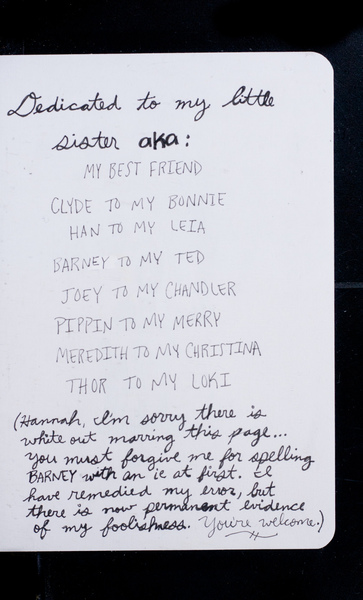 Dedicated to my little
sister aka:
MY BEST FRIEND
CLYDE TO MY BONNIE
HAN TO MY LEIA
BARNEY TO MY TED
JOEY TO MY CHANDLER
PIPPIN TO MY MERRY
MEREDITH TO MY CHRISTINA
THOR TO MY LOKI
(Hannah, I'm sorry there is
white out marring this page...
you must forgive me for spelling
BARNEY with an ie at first. I
have remedied my error, but
there is now permanent evidence
of my foolishness. You're welcome.)